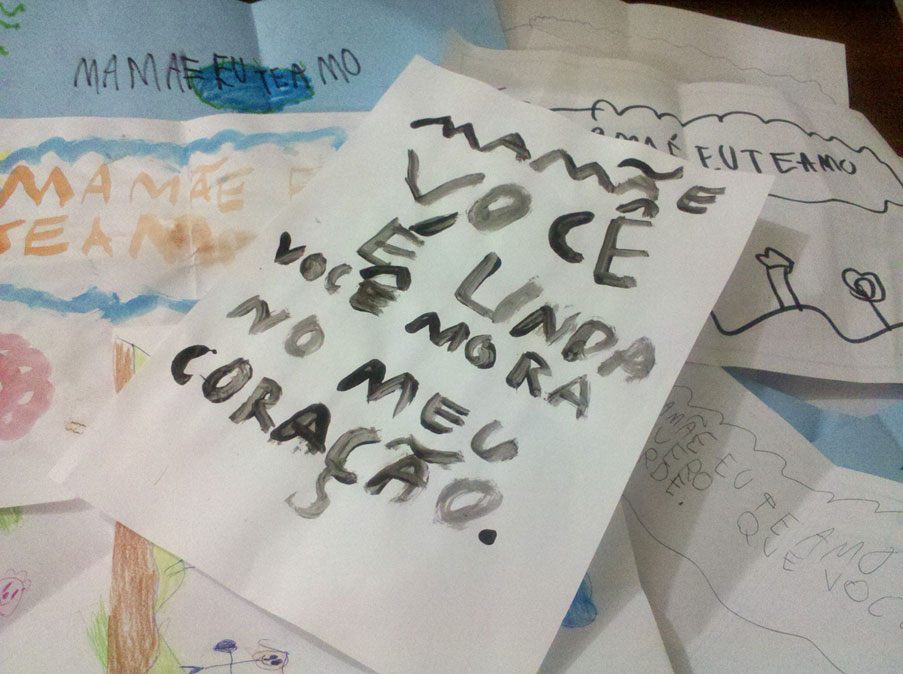 MAMAE EU TE AMO
MAMÃE E
TEAMO
MAMÃE
VOCÊ
É LINDA
VOCÊ MORA
NO MEU
CORAÇÃO.
AMAÉ EUTEAMO
EU TE AMO
QUE VOC